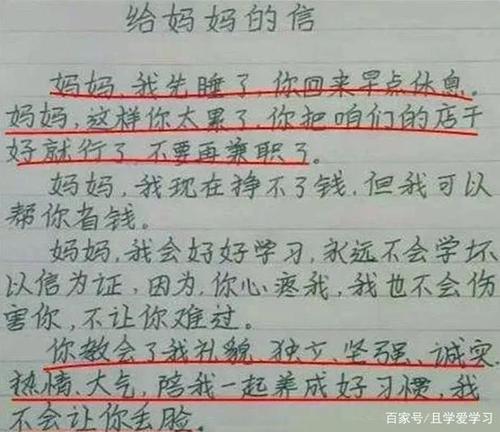 给妈妈的信
妈妈,我先睡了,你回来早点休息。
妈妈,这样你太累了,你把咱们的店干
好就行了,不要再兼职了。
妈妈,我现在挣不了钱,但我可以
帮你省钱。
妈妈,我会好好学习,永远不会学坏
以信为证,因为,你心疼我,我也不会伤
害你,不让你难过。
你教会了我礼貌、独立、坚强、诚实
热情、大气,陪我一起养成好习惯,我
不会让你丢脸。
百家号/且学爱学习